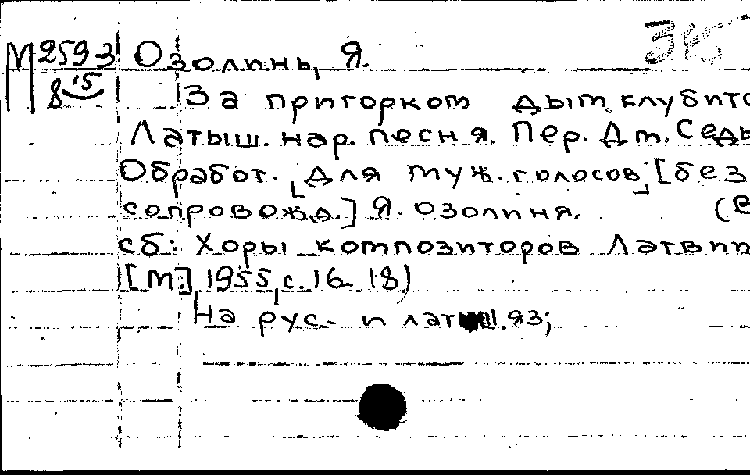 М 2593 Озолинь, Я. 375
8 15
За пригорком дым клубитс
Латыш. нар. песня. Пер. Дм. Седы
Обработ. для муж. голосов [без
сопровожд.] Я. Озолиня. (В
сб: Хоры композиторов Латвии
[М.] 1955, с. 16-18)
На рус. и латыш. яз;